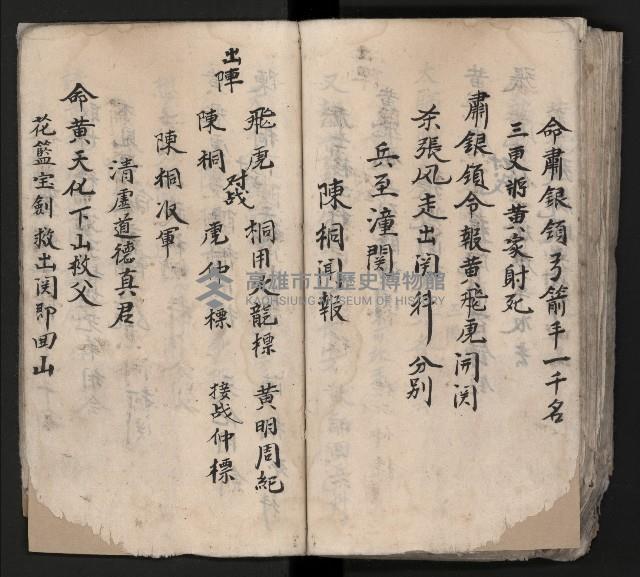 命肅銀領弓箭手一千名
三更將黃家射死
肅銀領令報黃飛虎開関
杀張风走出関科 分別
兵至潼関
陳桐聞報
出陣
飛虎 桐用火龍標 黃明周紀
对战
陳桐 虎仲標 接战仲標
陳桐收軍
清虛道德真君
命黃天化下山救父
花籃宝劍救出関即回山
高雄市立歷史博物館
KAOHSIUNG MUSEUM OF HISTORY